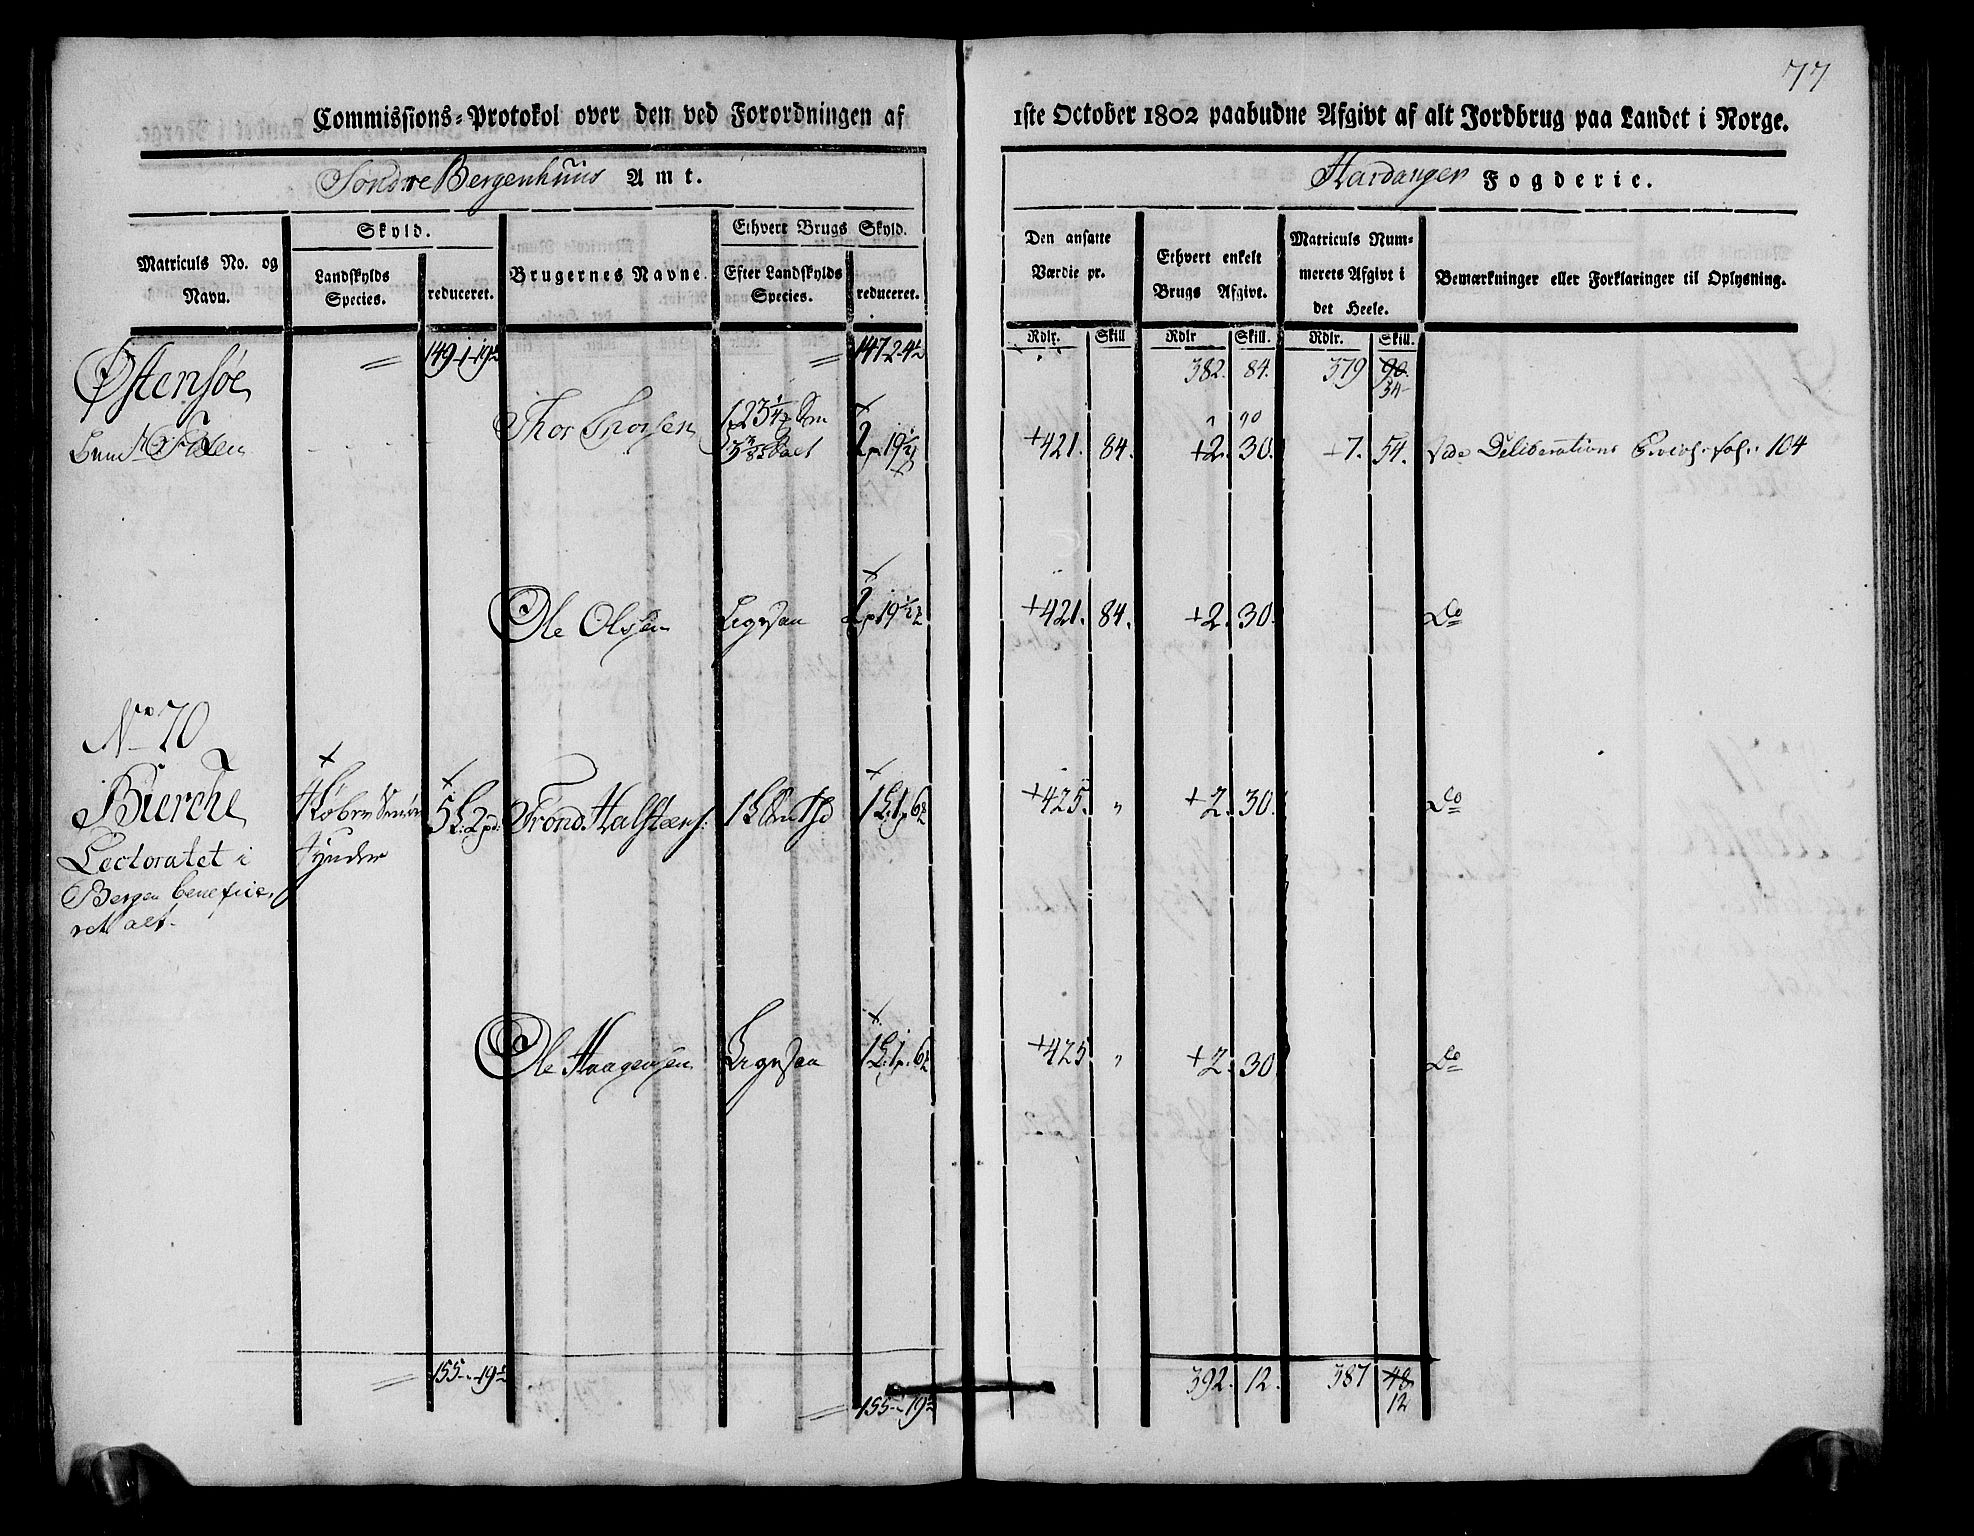 77
Commissions-Protokol over den ved Forordningen af 1ste October 1802 paabudne Afgivt af alt Jordbrug paa Landet i Norge.
Søndre Bergenhuus Amt.
Hardanger Fogderie.
Matriculs No. og Navn.
Skyld.
Landskylds Species.
reduceret.
Brugernes Navne.
Ethvert Brugs Skyld.
Efter Landskylds Species.
reduceret.
Den ansatte Værdie pr.
Ethvert enkelt Brugs Afgivt.
Matriculs Nummerets Afgivt i det Heele.
Bemærkninger eller Forklaringer til Oplysning.
Rdlr. Skill Rdlr Skill. Rdlr. Skill.
Østensøe
149-1-19½ 147-2-4½ 382. 84. 379 90.
54
Thor Thorsen
+421. 84. +2. 30. +7. 54. Vide Deliberations Protoc. fol. 104
Ole Olsen Ligesaa +421. 84. +2. 30. Do
No 70
Bierche
Lectoratet i
Bergen beneficeret alt.
Trond Halsteens. +425. " +2. 30. Do
Ole Haagensen Ligesaa +425 " +2. 30. Do
155-"-19½ 155-"-19½ 392. 12. 387 48
12